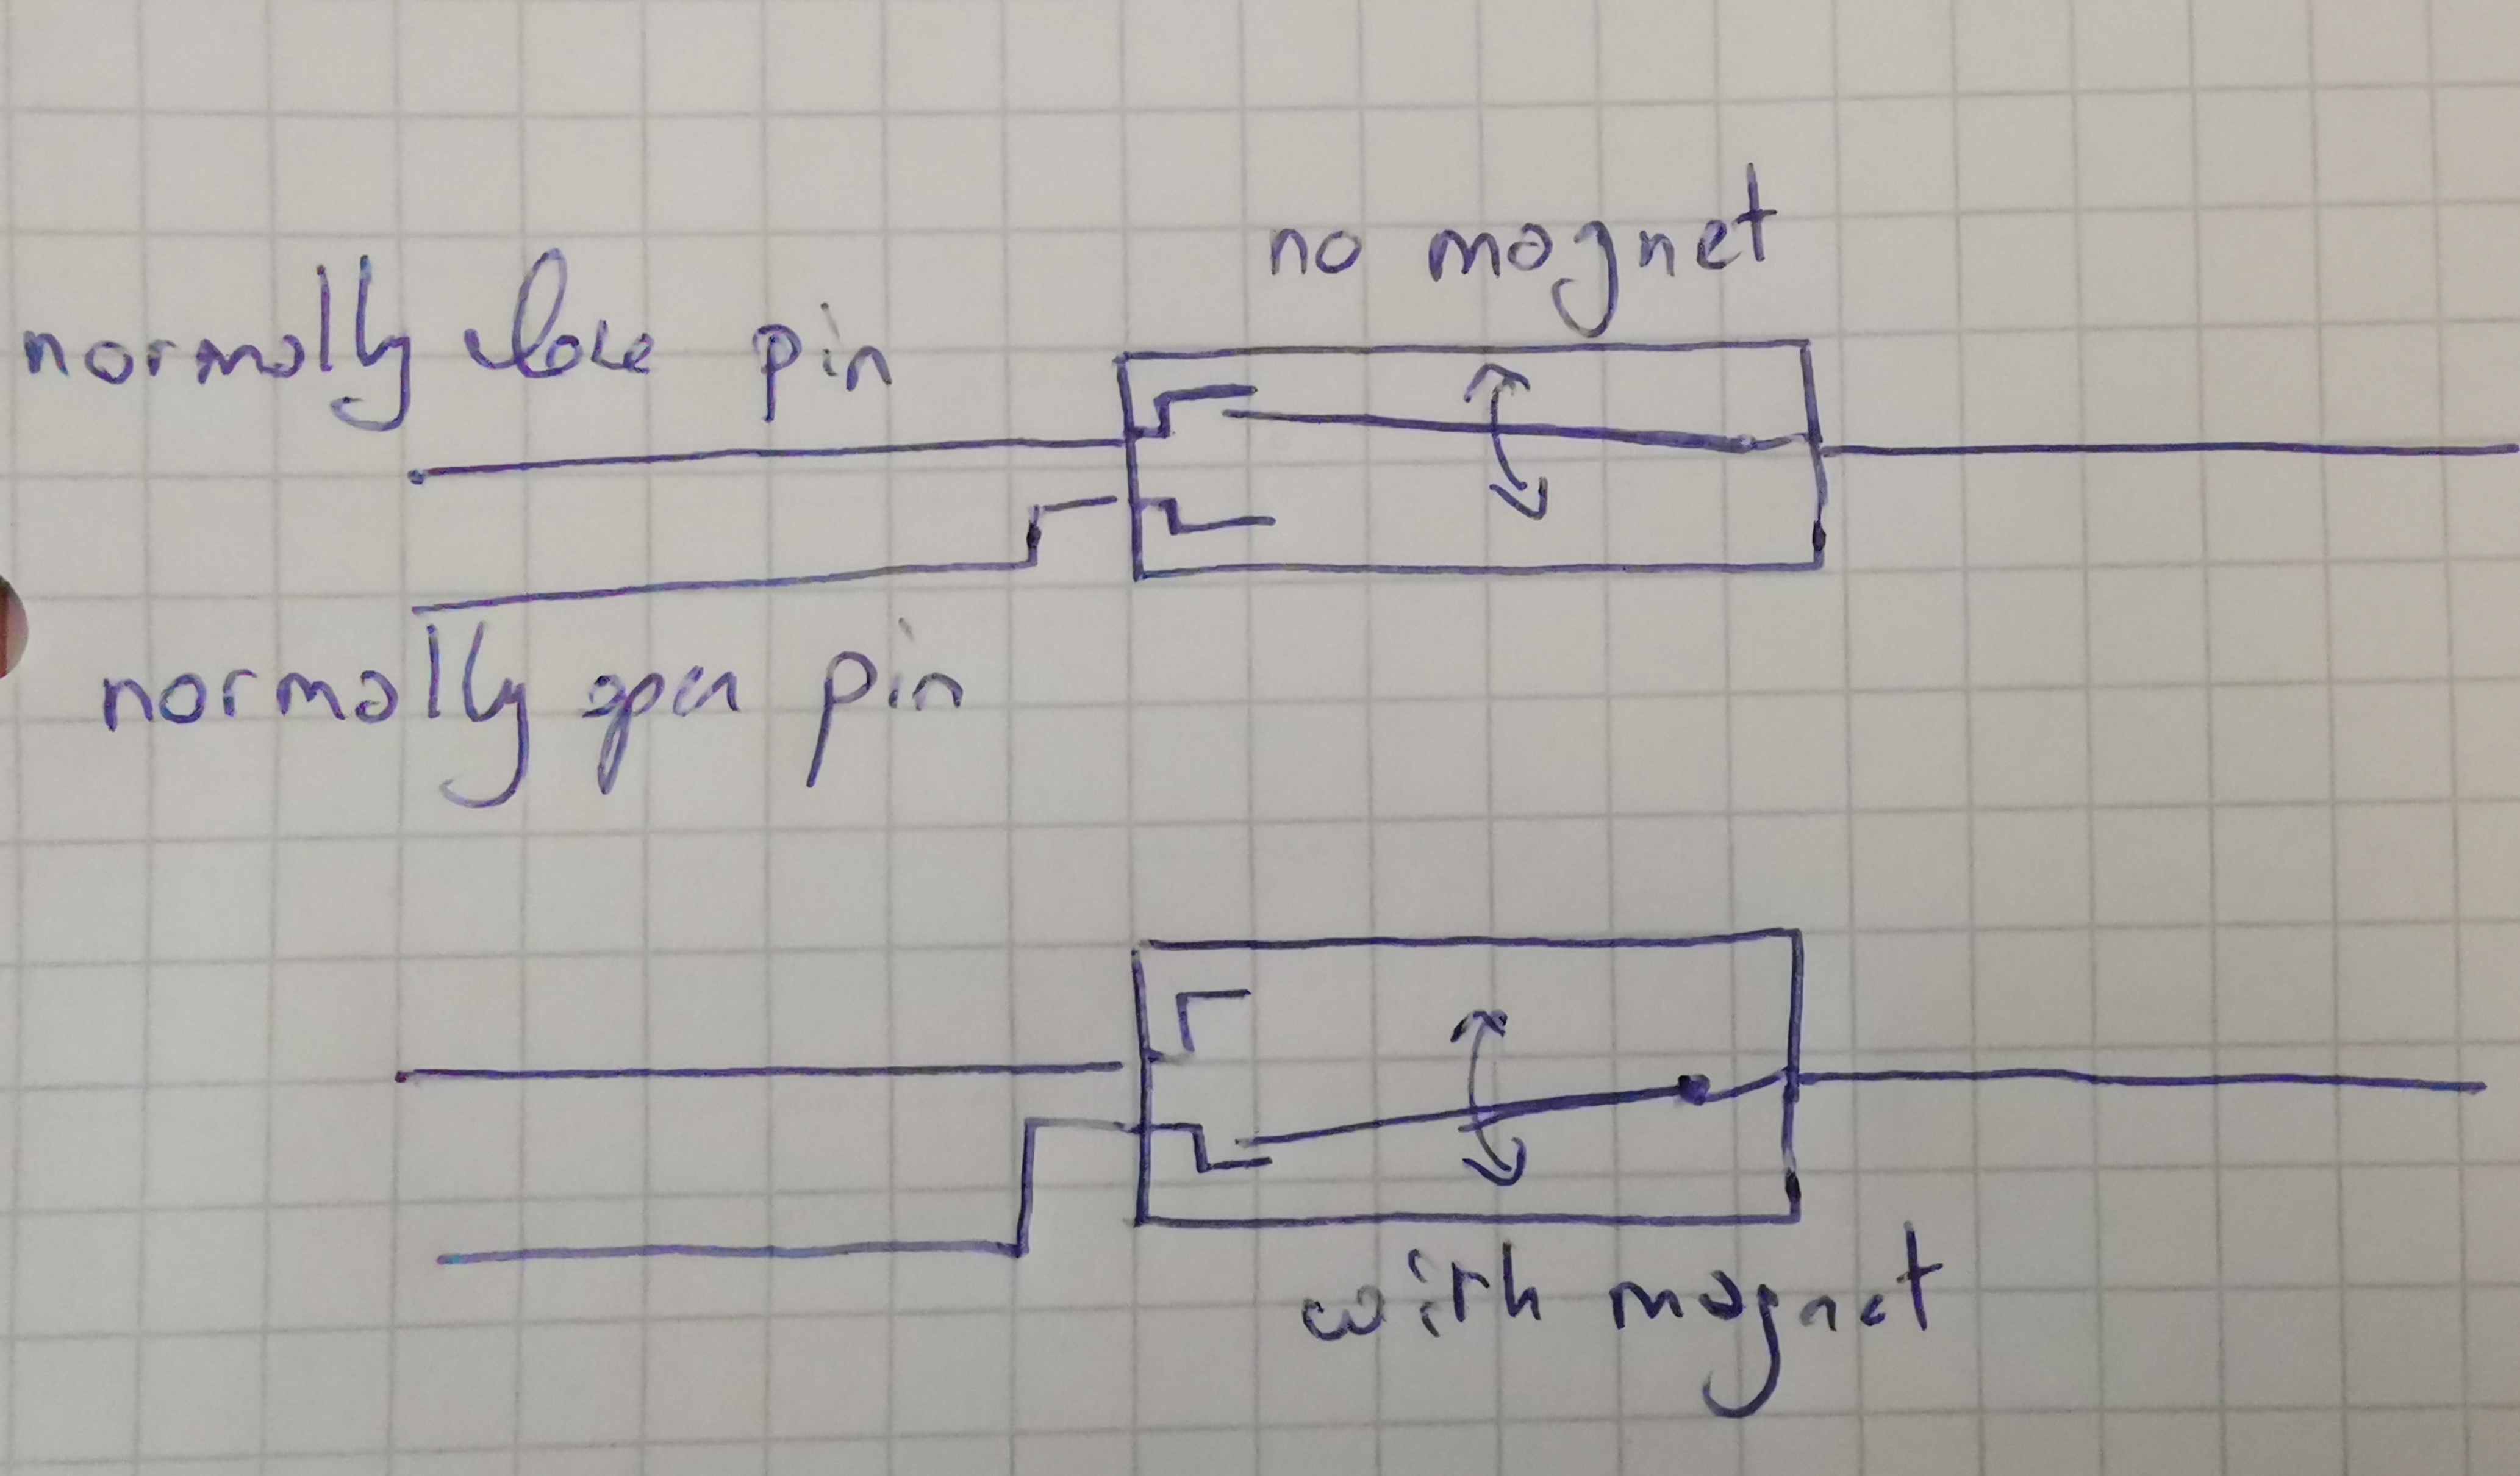 no magnet
normally close pin
normally open pin
with magnet